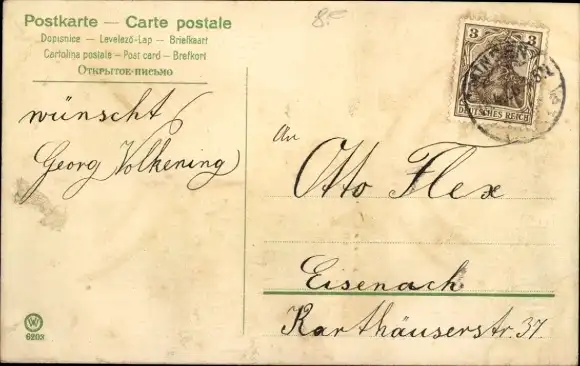 Postkarte — Carte postale
Dopisnice — Levelező-Lap — Briefkaart
Cartolina postale — Post card — Brefkort
Открытое письмо
8.-
wünscht
Georg Volkening
An
Otto Flex
Eisenach
Karthäuserstr. 37.
3 3
DEUTSCHES REICH
W
6203